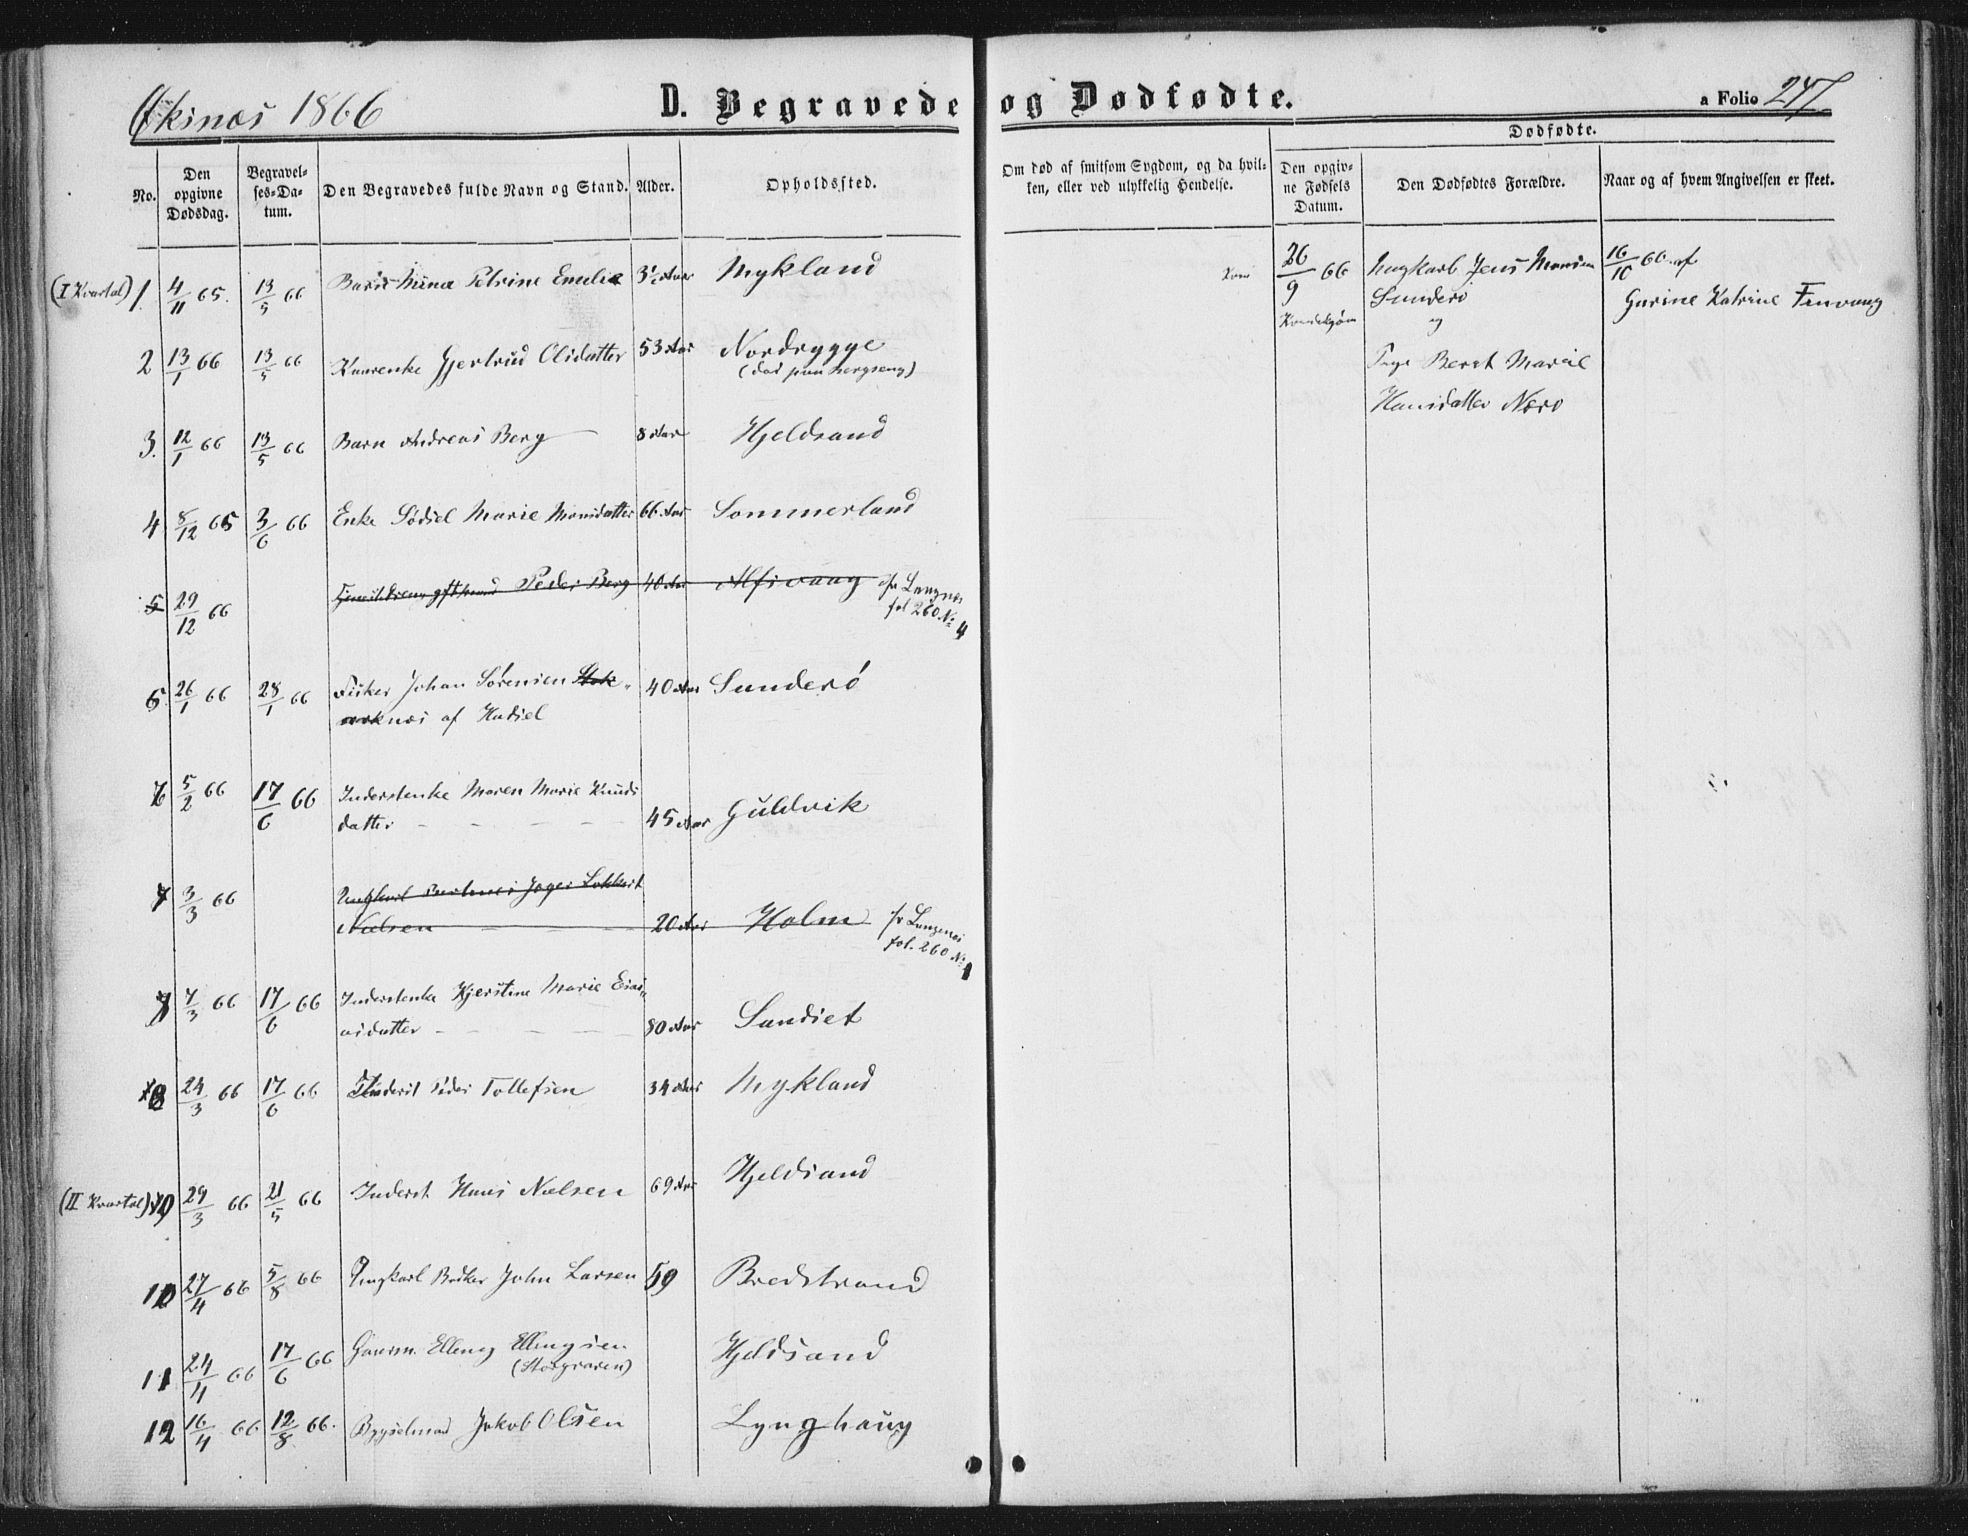 Øksnæs 1866 D. Begravede og Dødfødte. a Folio 247
Dødfødte.
No. Den opgivne Dødsdag. Begravelses-Datum. Den Begravedes fulde Navn og Stand. Alder. Opholdssted. Om død af smitsom Sygdom, og da hvilken, eller ved ulykkelig Hendelse. Den opgivne Fødsels Datum. Den Dødfødtes Forældre. Naar og af hvem Angivelsen er skeet.
(I Kvartal) 1. 4/11 65. 13/5 66 Petrine Emelie 3½ Aar Mykland
2 13/1 66 13/5 66 Gjertrud Olsdatter 53 Aar Nordrygge
3. 12/1 66 13/5 66 Barn Andreas Berg 8 Aar Hjeldsand
4 8/12 65 3/6 66 Enke Sødsel Marie Monsdatter 66 Aar Sommerland
5 29/12 66 Peder Berg 40 Aar Alfsvaag fr Langnes
fol 260 No 4
5. 26/1 66 28/1 66 Fisker Johan Sørensen Stok-
marknæs af Hadsel 40 Aar Sunderø
6 5/2 66 17/6 66 Inderstenke Maren Marie Knuds
datter 45 Aar Guldvik
7 3/3 66 Ungkarl Jæger Lokkert
Nielsen 20 Aar Holm fr Langenes
fol. 260 No 1
7 7/3 66 17/6 66 Inderstenke Kjerstine Marie Esai-
asdatter 80 Aar Sandset
8 24/3 66 17/6 66 Inderst Peder Tollefsen 34 Aar Mykland
(II Kvartal) 9 29/3 66 21/5 66 Inderst Hans Nielsen 69 Aar Hjeldsand
10 27/4 66 5/8 66 Ungkarl Bødker John Larsen 59 Bredstrand
11 24/4 66 17/6 66 Gaarm. Elling Ellingsen Hjeldsand
12 16/4 66 12/8 66. Bygselmand Jakob Olsen Lynghaug
26/9 66
Kvindekjøn
Ungkarl Jens Monsen
Sunderø
og
Pige Beret Marie
Hansdatter Nærø
16/10 66 af
Gurine Katrine Finvaag